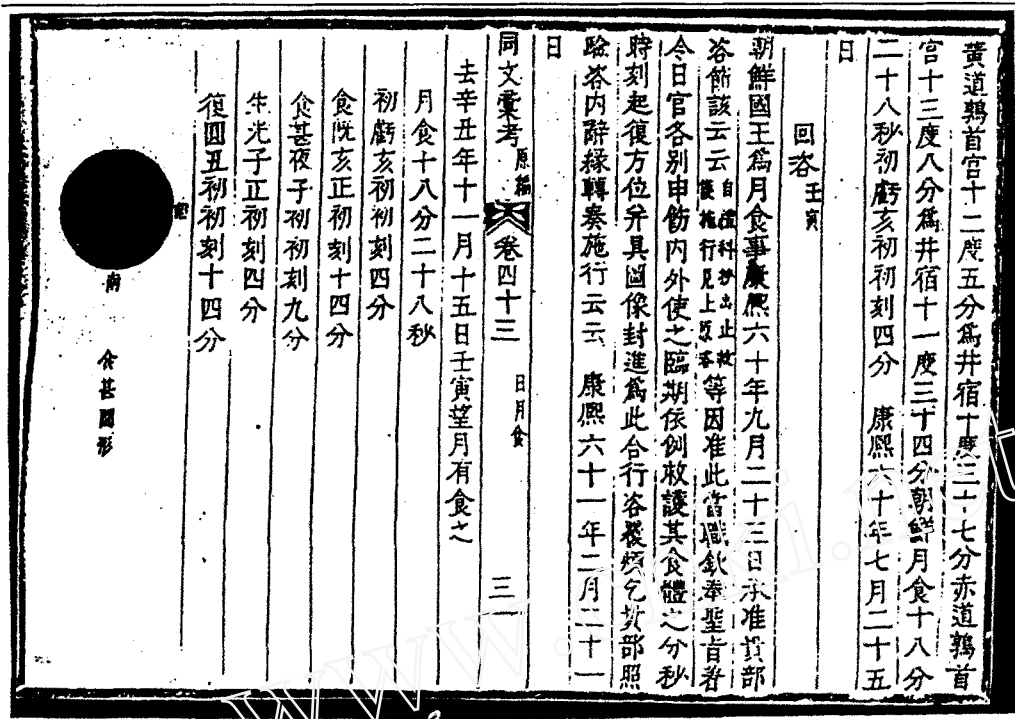 黃道鶉首宮十二度五分爲井宿十度三十七分赤道鶉首
宮十三度八分爲井宿十一度三十四分朝鮮月食十八分
二十八秒初虧亥初初刻四分　康熙六十年七月二十五
日
回咨壬寅
朝鮮國王爲月食事康熙六十年九月二十三日承准貴部
咨節該云云自禮科抄出止救護施行見上原咨等因准此當職欽奉聖旨着
令日官各別申飭內外使之臨期依例救護其食體之分秒
時刻起復方位幷具圖像封進爲此合行咨覆煩乞貴部照
驗咨內辭緣轉奏施行云云　康熙六十一年二月二十一
日
同文彙考原編　卷四十三　日月食　三
去辛丑年十一月十五日壬寅望月有食之
月食十八分二十八秒
初虧亥初初刻四分
食旣亥正初刻十四分
食甚夜子初初刻九分
生光子正初刻四分
復圓丑初初刻十四分
南
食甚圖形
www.